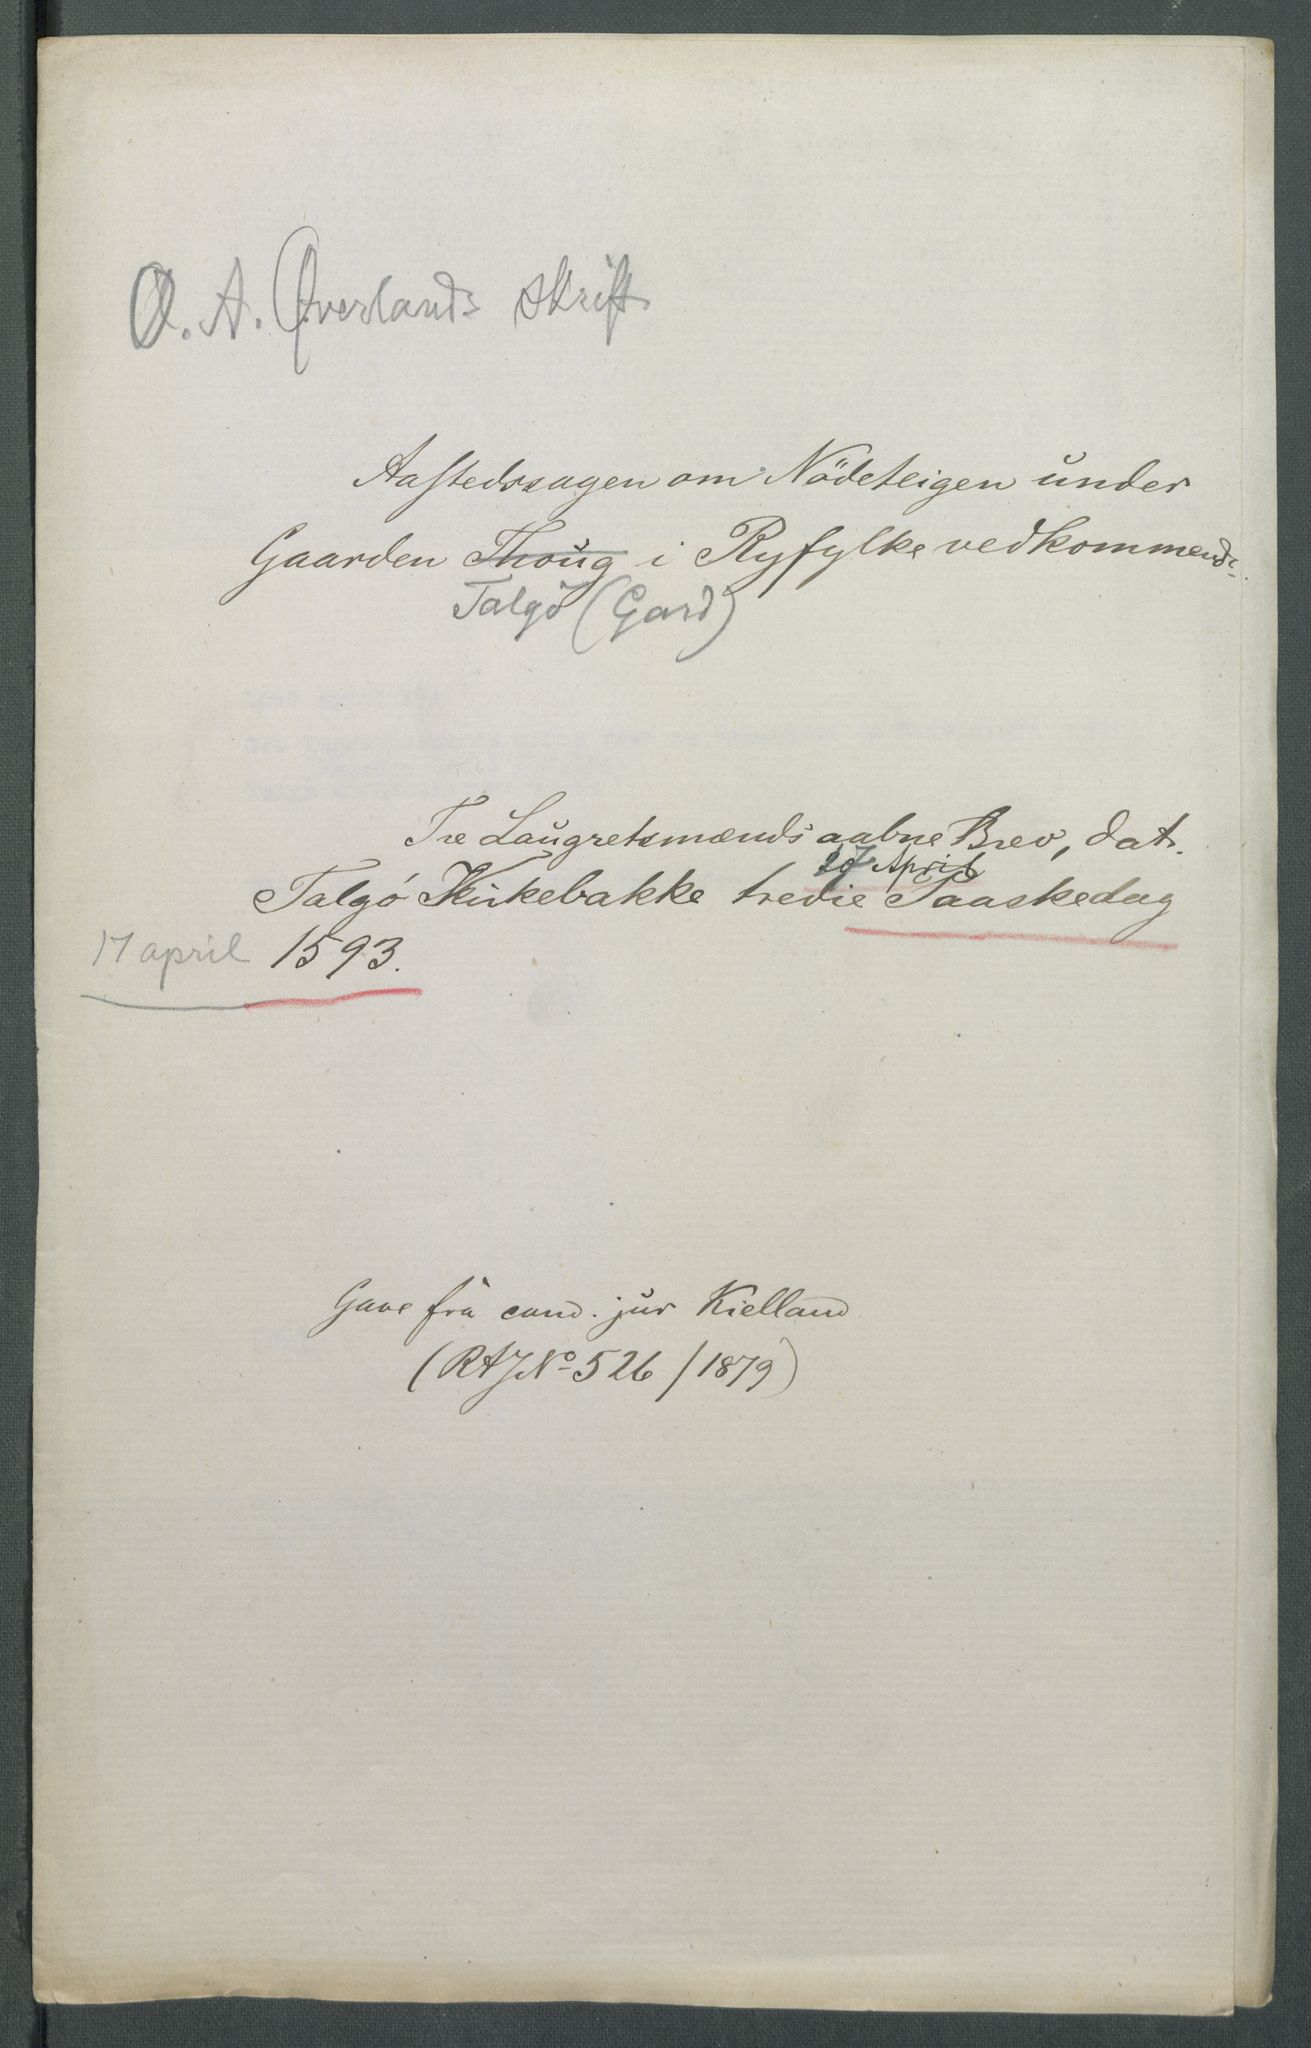 O. A. Øverlands skrift
Aastedssagen om Nödeteigen under
Gaarden Thoug i Ryfylke vedkommende.
Talgö (Gard)
Tre Laugretsmænds aabne Brev, dat.
27 April
Talgö Kirkebakke tredie Paaskedag
17 april 1593.
Gave fra cand. jur Kielland
(RAJNo 526/1879)